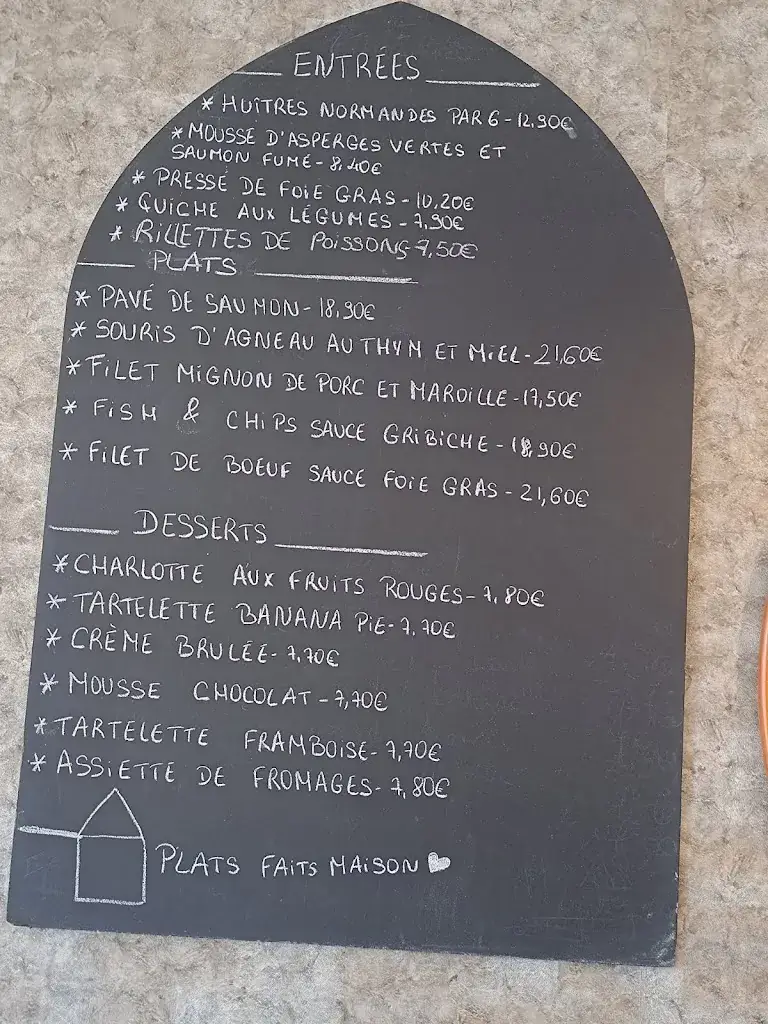 ENTRÉES
* HUÎTRES NORMANDES PAR 6 - 12,90€
* MOUSSE D'ASPERGES VERTES ET
SAUMON FUMÉ - 8,40€
* PRESSÉ DE FOIE GRAS - 10,20€
* QUICHE AUX LÉGUMES - 7,90€
* RILLETTES DE POISSONS - 7,50€
PLATS
* PAVÉ DE SAUMON - 18,90€
* SOURIS D'AGNEAU AU THYM ET MIEL - 21,60€
* FILET MIGNON DE PORC ET MAROILLE - 17,50€
* FISH & CHIPS SAUCE GRIBICHE - 18,90€
* FILET DE BOEUF SAUCE FOIE GRAS - 21,60€
DESSERTS
* CHARLOTTE AUX FRUITS ROUGES - 7,80€
* TARTELETTE BANANA PIE - 7,70€
* CRÈME BRULÉE - 7,70€
* MOUSSE CHOCOLAT - 7,70€
* TARTELETTE FRAMBOISE - 7,70€
* ASSIETTE DE FROMAGES - 7,80€
PLATS FAITS MAISON ♥